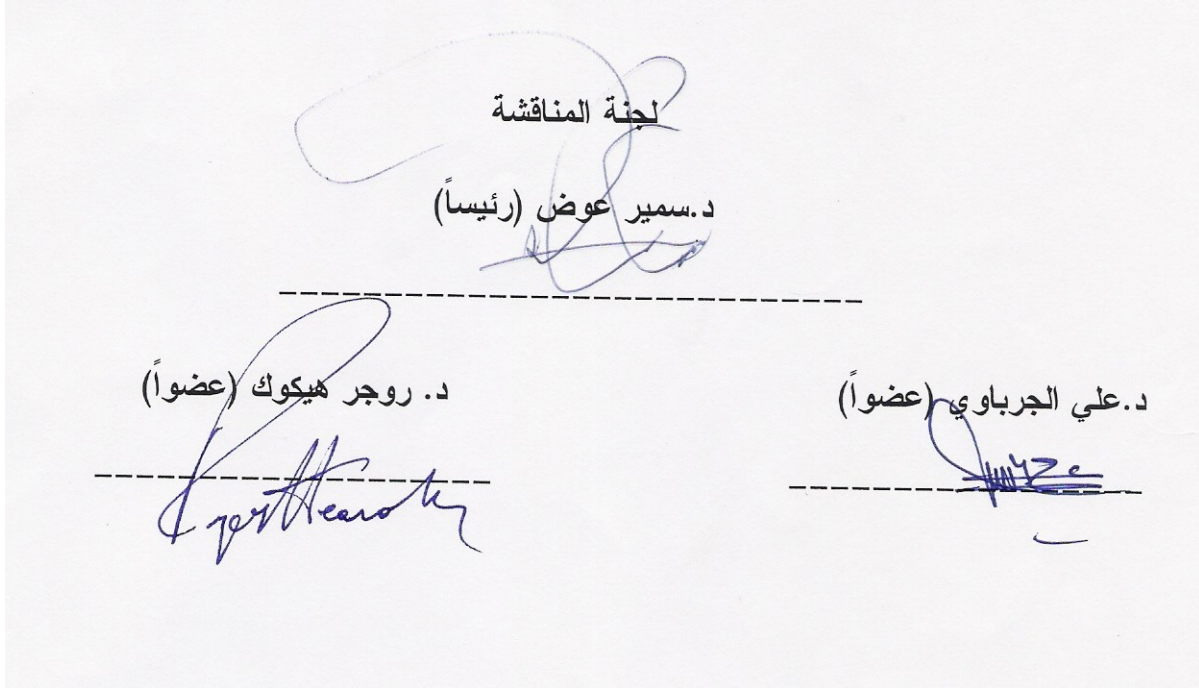 لجنة المناقشة
د.سمير عوض (رئيساً)
د.علي الجرباوي (عضواً)
د. روجر هيكوك (عضواً)